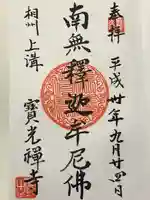 奉拝
平成卅年九月廿四日
南無釋迦牟尼佛
相州上溝
寶光禪寺